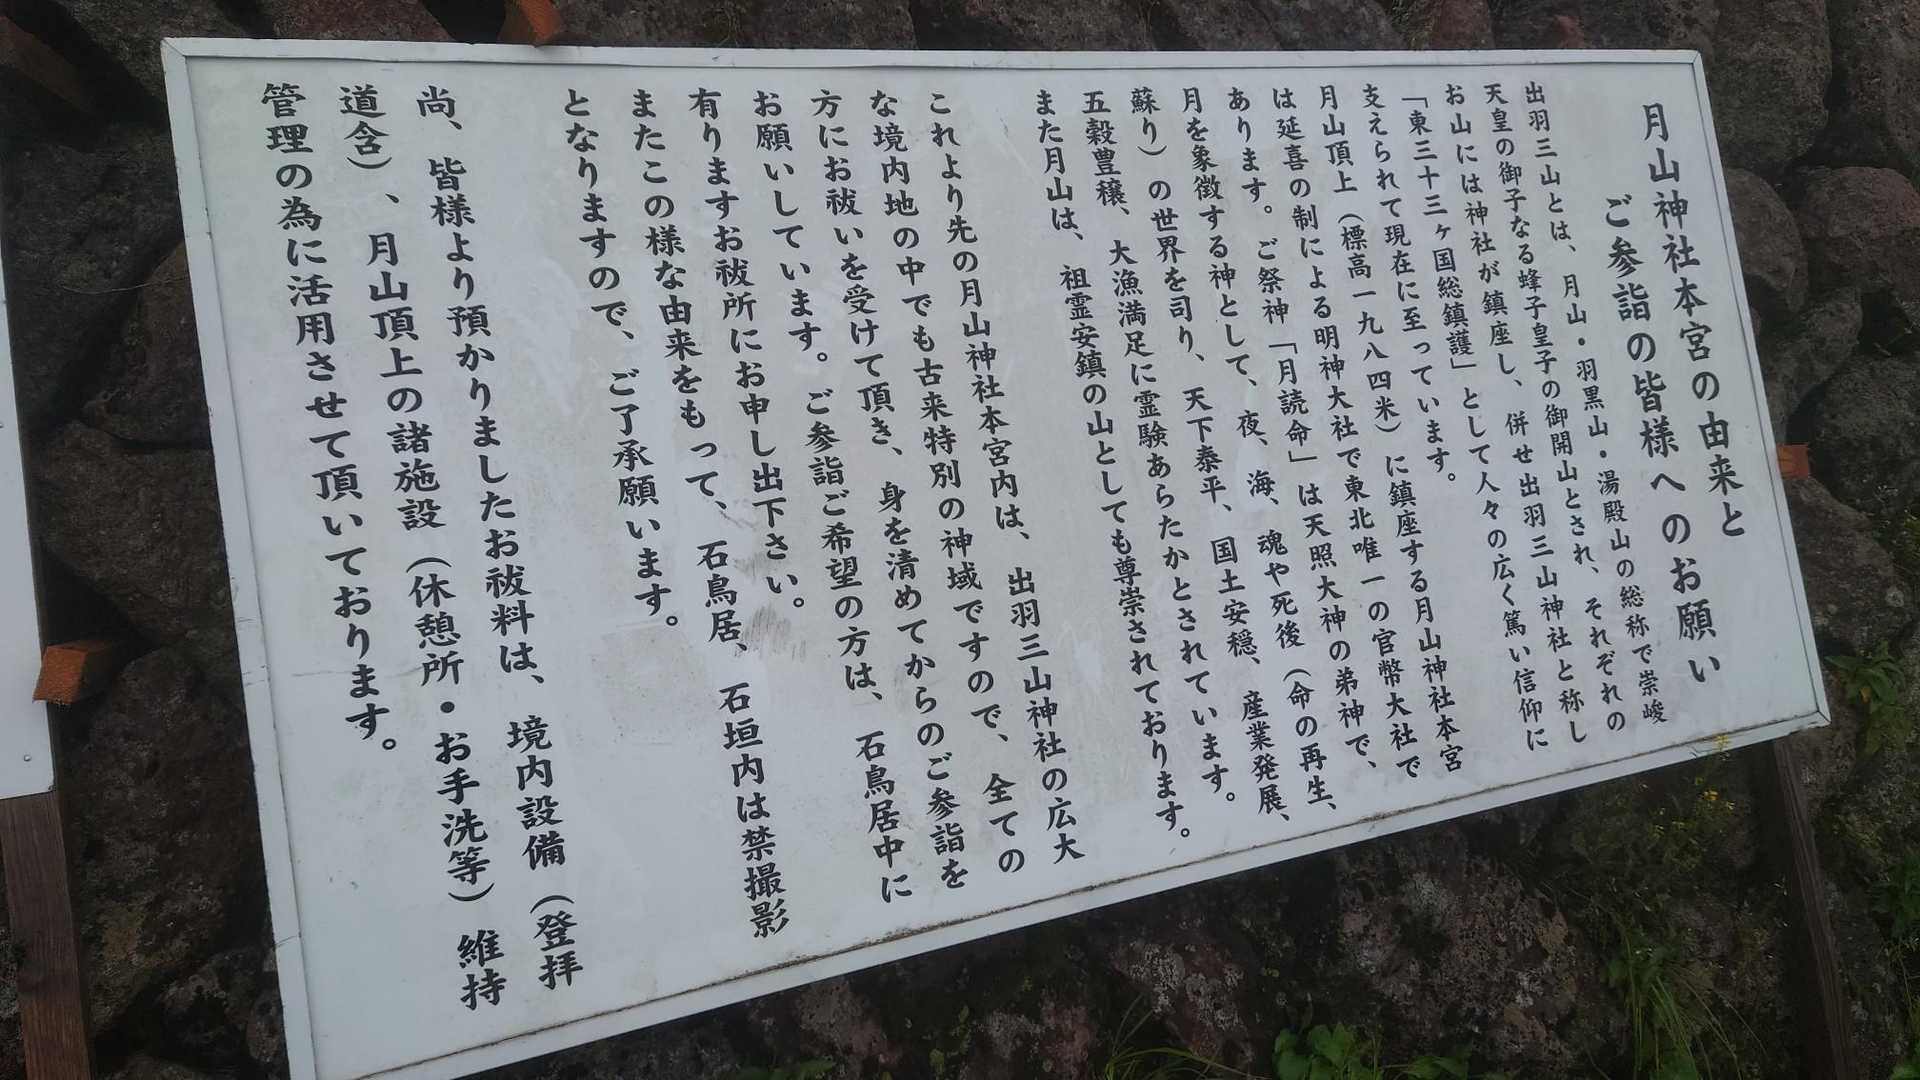 月山神社本宮の由来と
ご参詣の皆様へのお願い
出羽三山とは、月山・羽黒山・湯殿山の総称で崇峻
天皇の御子なる蜂子皇子の御開山とされ、それぞれの
お山には神社が鎮座し、併せ出羽三山神社と称し
「東三十三ヶ国総鎮護」として人々の広く篤い信仰に
支えられて現在に至っています。
月山頂上（標高一九八四米）に鎮座する月山神社本宮
は延喜の制による明神大社で東北唯一の官幣大社で
あります。ご祭神「月読命」は天照大神の弟神で、
月を象徴する神として、夜、海、魂や死後（命の再生、
蘇り）の世界を司り、天下泰平、国土安穏、産業発展、
五穀豊穣、大漁満足に霊験あらたかとされています。
また月山は、祖霊安鎮の山としても尊崇されております。
これより先の月山神社本宮内は、出羽三山神社の広大
な境内地の中でも古来特別の神域ですので、全ての
方にお祓いを受けて頂き、身を清めてからのご参詣を
お願いしています。ご参詣ご希望の方は、石鳥居中に
有りますお祓所にお申し出下さい。
またこの様な由来をもって、石鳥居、石垣内は禁撮影
となりますので、ご了承願います。
尚、皆様より預かりましたお祓料は、境内設備（登拝
道含）、月山頂上の諸施設（休憩所・お手洗等）維持
管理の為に活用させて頂いております。